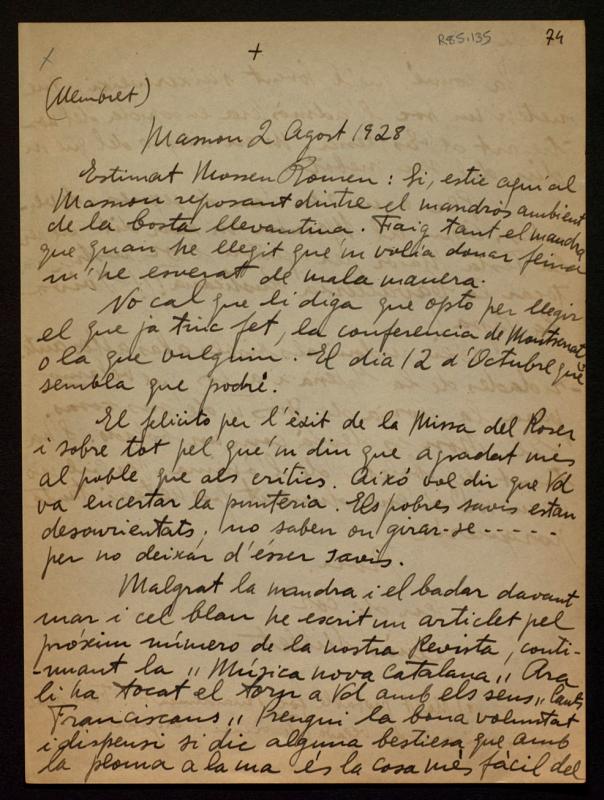 R85.135
74
+
(Membret)
Masnou 2 Agost 1928
Estimat Mossen Romeu: Si, estic aquí al
Masnou reposant dintre el mandrós ambient
de la Costa llevantina. Faig tant el mandra
que quan he llegit que'm volia donar feina
m'he esverat de mala manera.
No cal que li diga que opto per llegir
el que ja tinc fet, la conferencia de Montserrat
o la que vulguin. El dia 12 d'Octubre
sembla que podré.
El felicito per l'èxit de la Missa del Roser
i sobre tot pel que'm diu que agradat més
al poble que als crítics. Aixó vol dir que Vd
va encertar la punteria. Els pobres savis estan
desourientats, no saben on girar-se -----
per no deixar d'ésser savis.
Malgrat la mandra i el badar davant
mar i cel blau he escrit un articlet pel
próxim número de la nostra Revista, conti-
-nuant la „Música nova catalana„ Ara
li ha tocat el torn a Vd amb els seus „Cants
Franciscans„ Prengui la bona voluntat
i dispensi si dic alguna bestiesa que amb
la ploma a la ma és la cosa més fàcil del